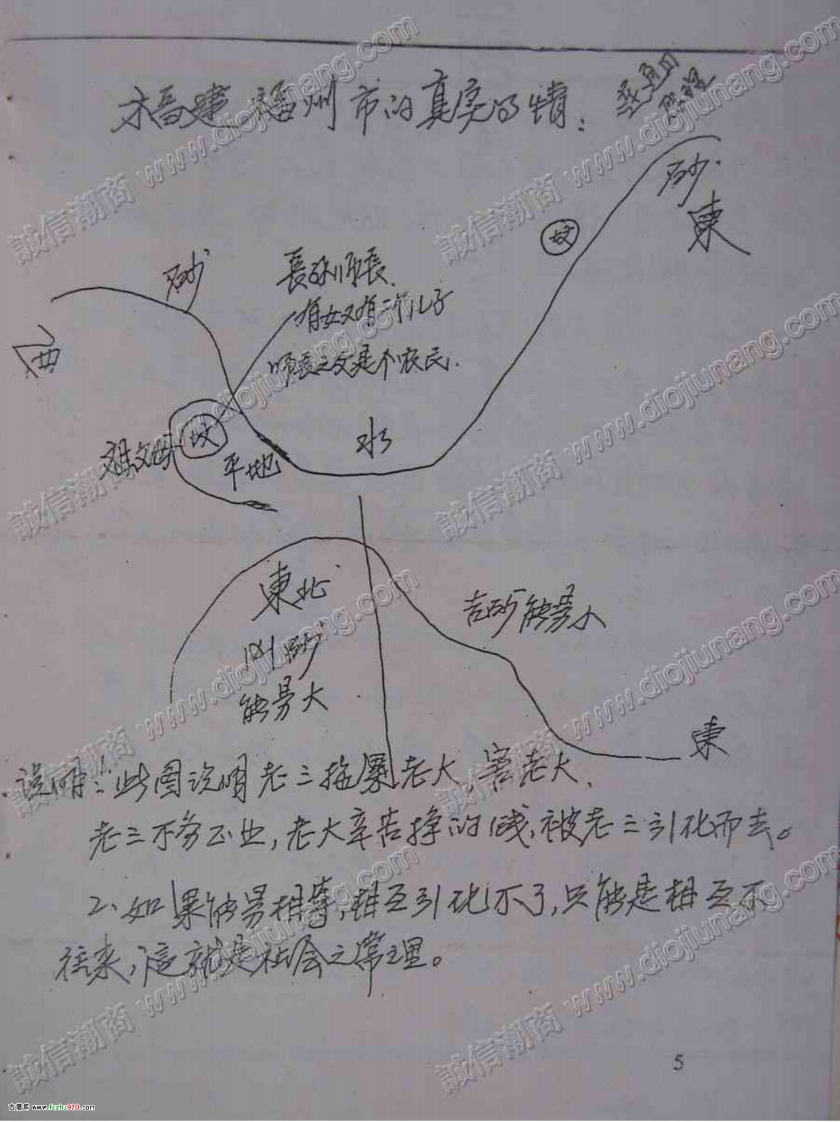 福建 福州市的真实事情：
砂
東
坟
砂
西
有女又有三个儿子
师長之父是个农民.
坟
祖父母
平地
水
東北
凶砂
能量大
吉砂能量小
東
说明：此图说明老三拖累老大,害老大、
老三不务正业,老大辛苦挣的钱,被老三引化而去。
2、如果能量相等,相互引化不了,只能是相互不
往来,这就是社会之常理。
5
誠信潮商 www.diojiunang.com
古籍库 www.fczhu920.com